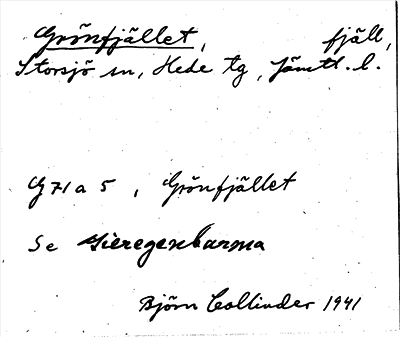 Grönfjället, fjäll,
Storsjö sn, Hede tg, Jämtl. l.
G 71 a 5, Grönfjället
Se Gieregenbarma
Björn Collinder 1941